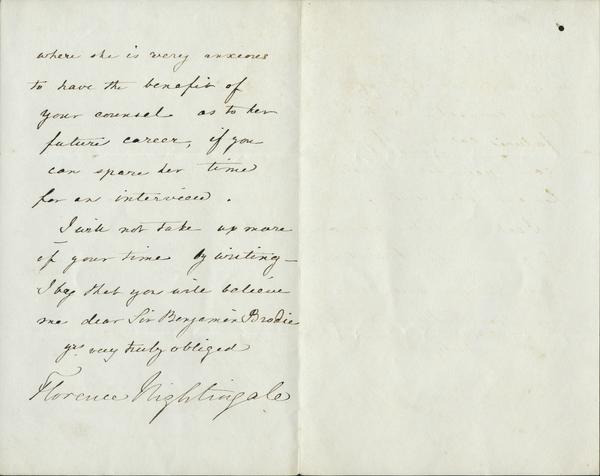 where she is very anxious
to have the benefit of
your counsel as to her
future career, if you
can spare her time
for an interview.
I will not take up more
of your time by writing—
I beg that you will believe
me dear Sir Benjamin Brodie
yrs very truly obliged
Florence Nightingale